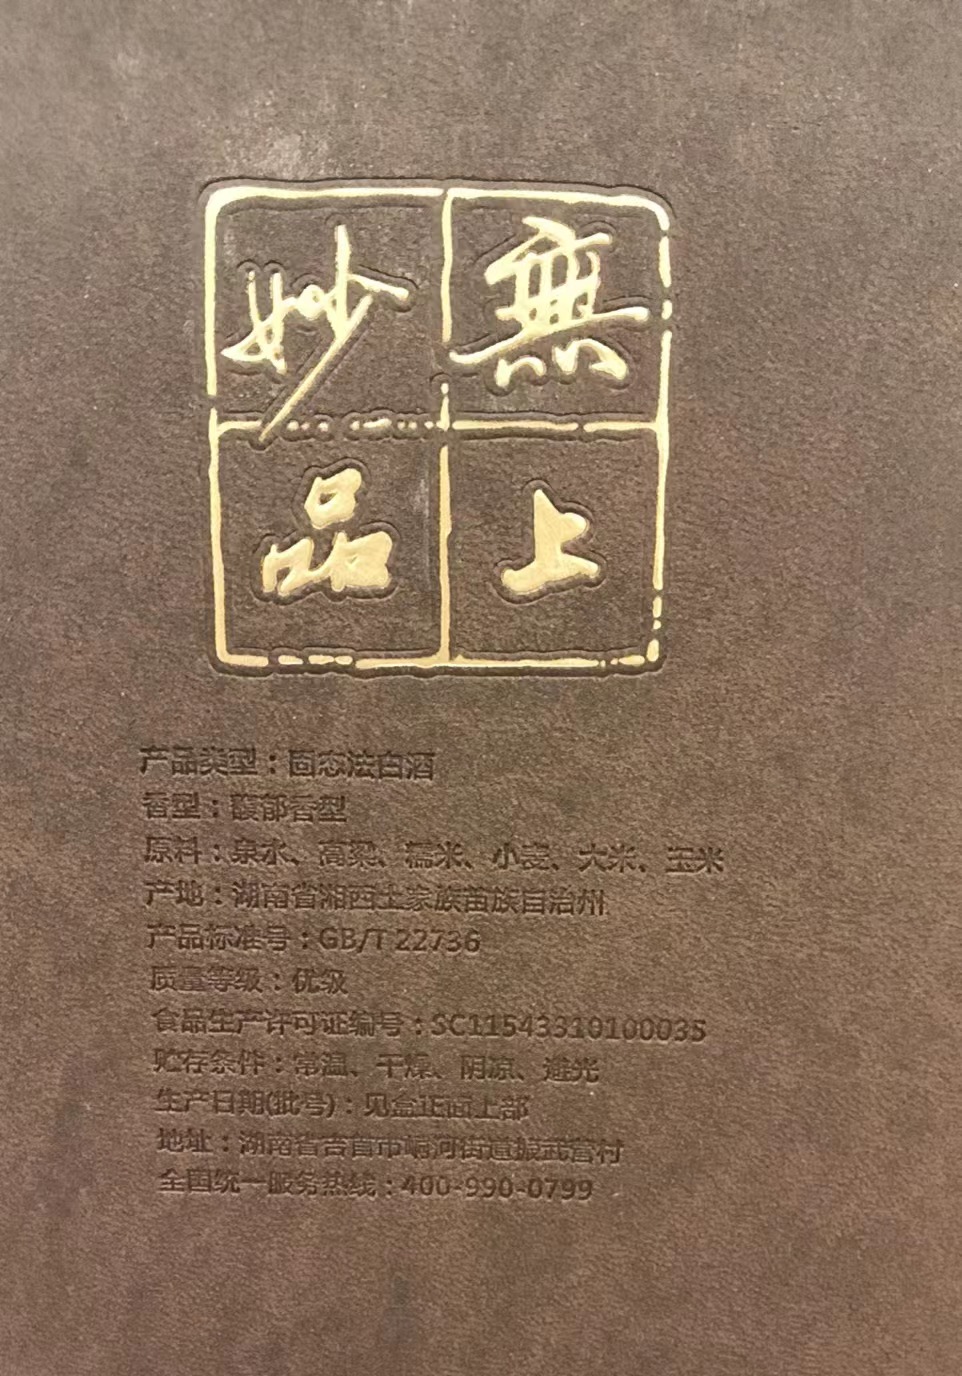 無上
妙品
产品类型：固态法白酒
香型：馥郁香型
原料：泉水、高粱、糯米、小麦、大米、玉米
产地：湖南省湘西土家族苗族自治州
产品标准号：GB/T 22736
质量等级：优级
食品生产许可证编号：SC11543310100035
贮存条件：常温、干燥、阴凉、避光
生产日期(批号)：见盒正面上部
地址：湖南省吉首市峒河街道振武营村
全国统一服务热线：400-990-0799